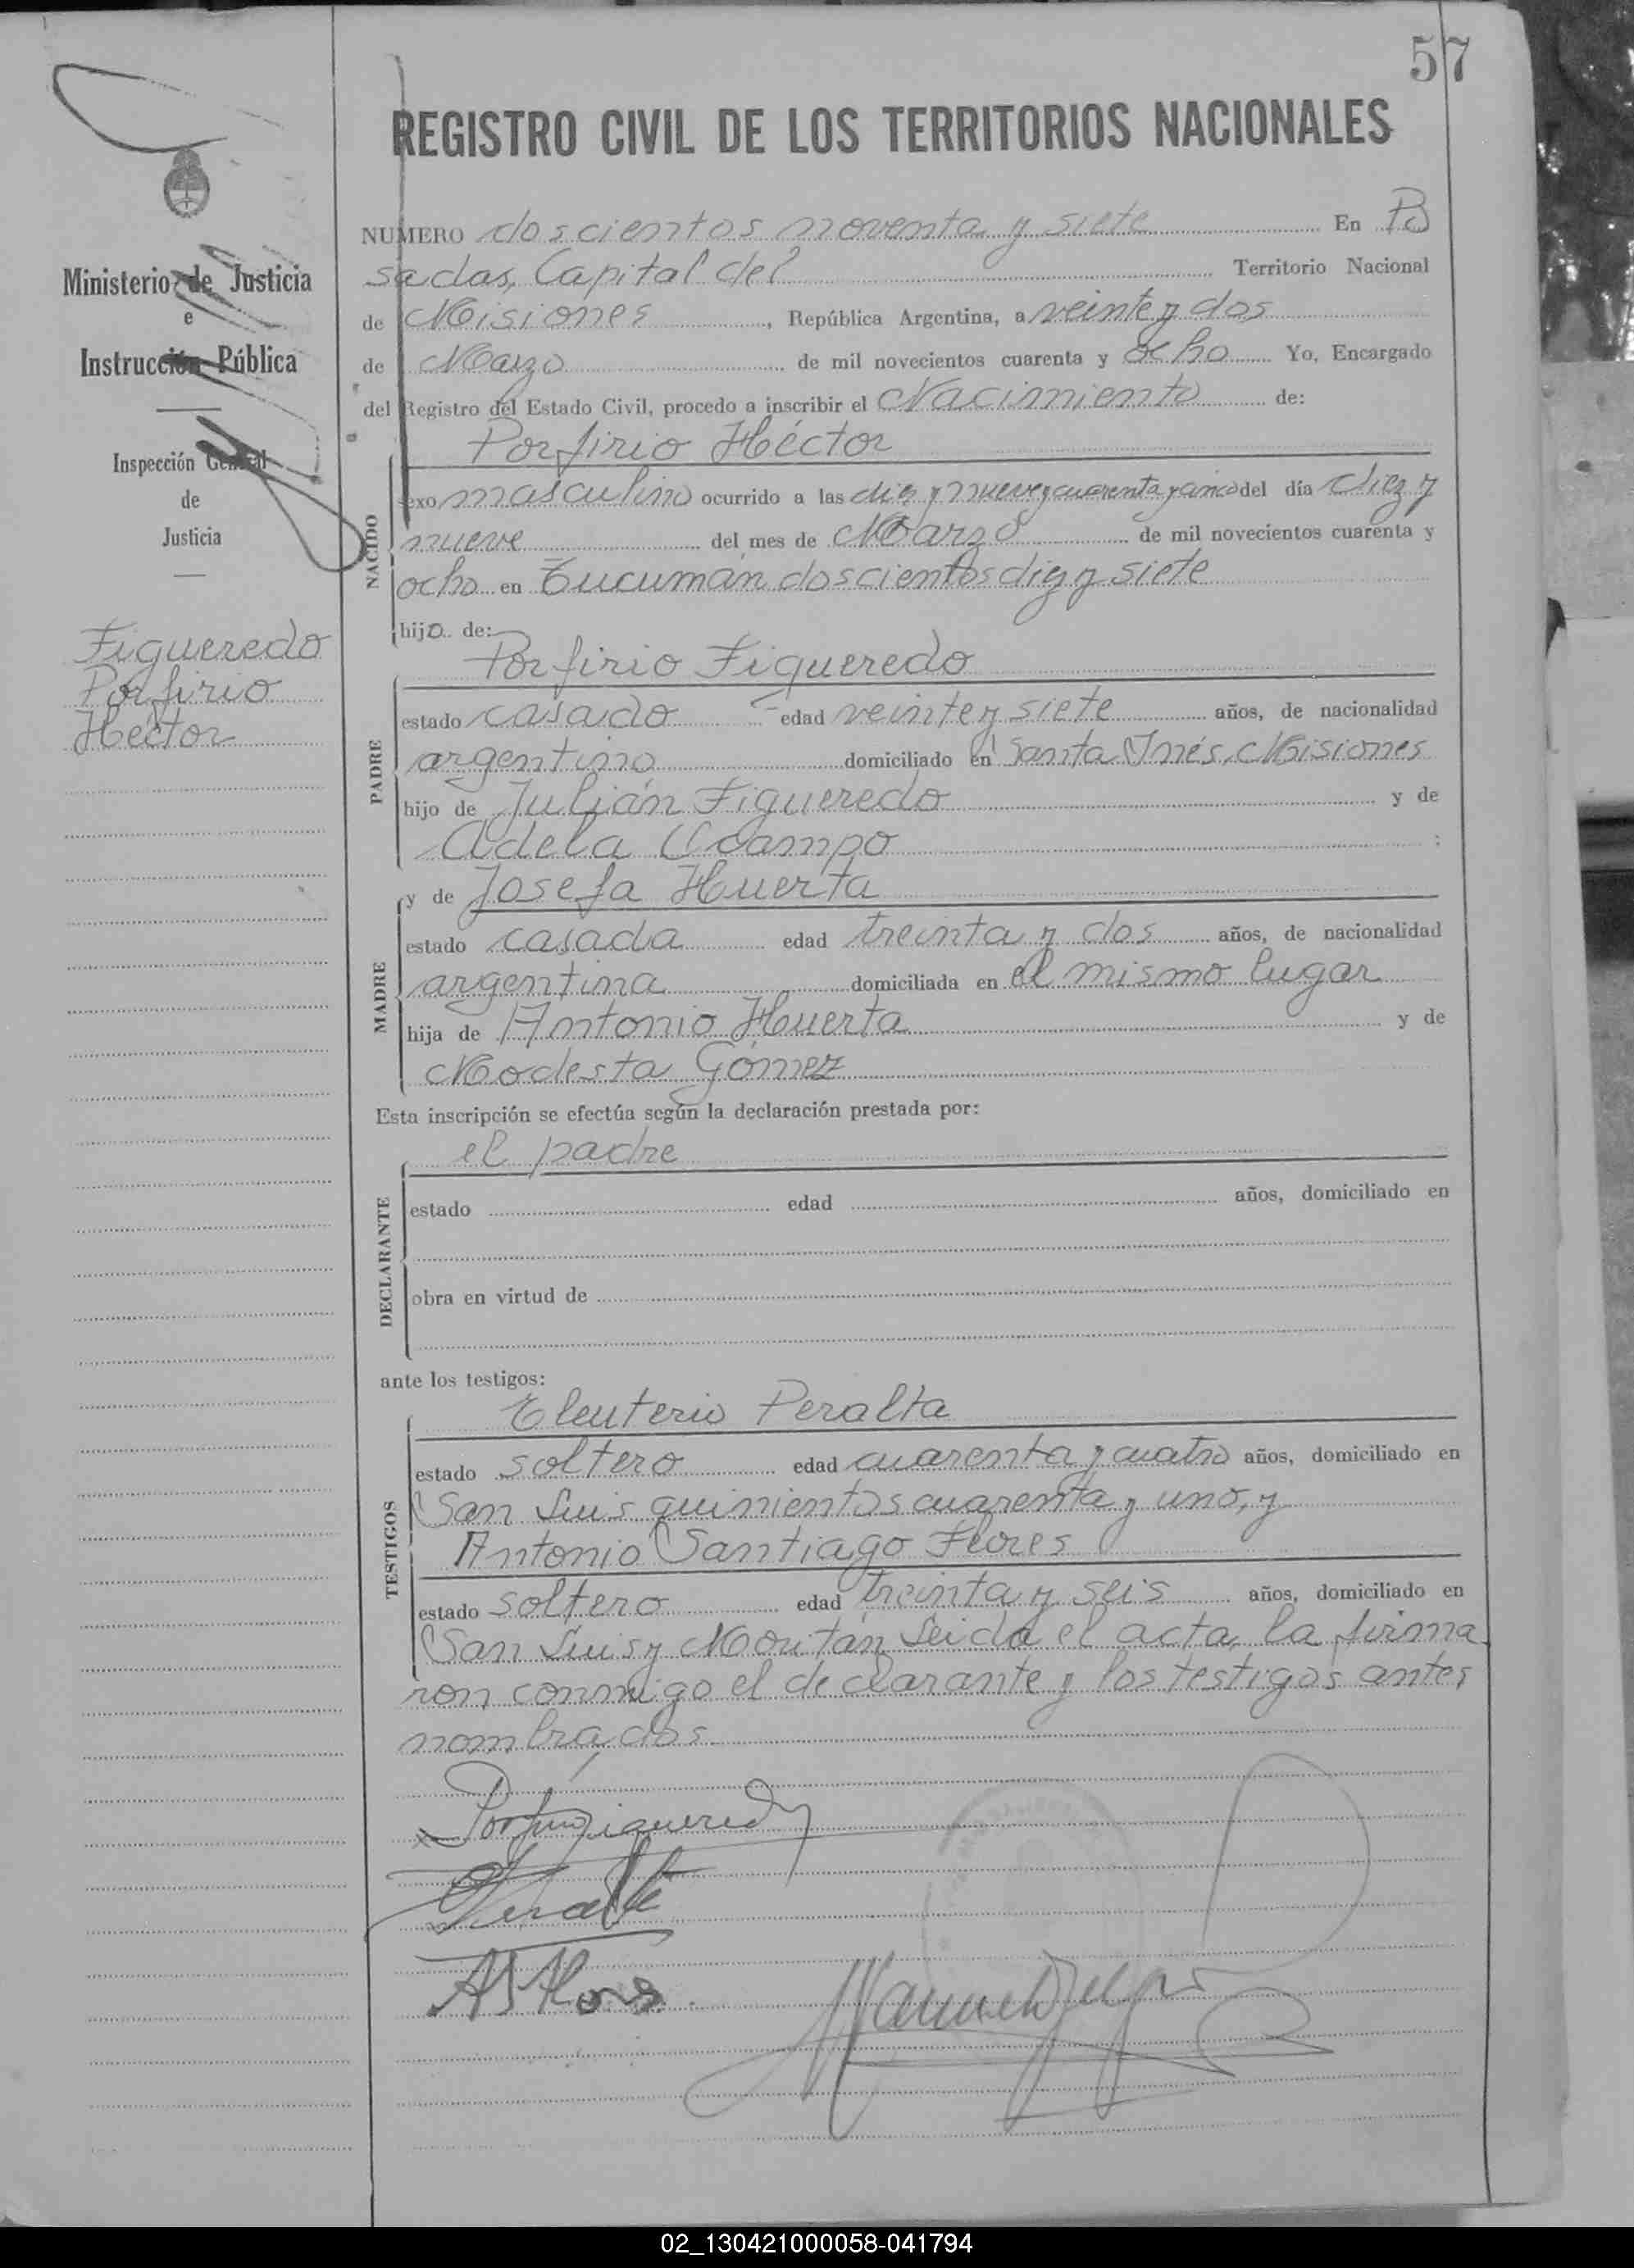 57
REGISTRO CIVIL DE LOS TERRITORIOS NACIONALES
NUMERO doscientos noventa y siete En Po
sadas, Capital del Territorio Nacional
de Misiones, República Argentina, a veinte y dos
de Marzo de mil novecientos cuarenta y ocho Yo, Encargado
del Registro del Estado Civil, procedo a inscribir el Nacimiento de:
Porfirio Héctor
NACIDO
sexo masculino ocurrido a las diez y nueve y cuarenta y cinco del día diez y
nueve del mes de Marzo de mil novecientos cuarenta y
ocho en Tucumán doscientos diez y siete
hijo de:
Porfirio Figueredo
PADRE
estado casado edad veinte y siete años, de nacionalidad
argentino domiciliado en Santa Inés, Misiones
hijo de Julián Figueredo y de
Adela Ocampo ;
y de Josefa Huerta
MADRE
estado casada edad treinta y dos años, de nacionalidad
argentina domiciliada en el mismo lugar
hija de Antonio Huerta y de
Modesta Gómez
Esta inscripción se efectúa según la declaración prestada por:
el padre
DECLARANTE
estado edad años, domiciliado en
obra en virtud de
ante los testigos:
Eleuterio Peralta
TESTIGOS
estado soltero edad cuarenta y cuatro años, domiciliado en
San Luis quinientos cuarenta y uno, y
Antonio Santiago Flores
estado soltero edad treinta y seis años, domiciliado en
San Luis y Moritán Leida el acta, la firma
ron conmigo el declarante y los testigos antes
nombrados.
Porfirio Figueredo
Peralta
A S Flores
Ministerio de Justicia
e
Instrucción Pública
Inspección General
de
Justicia
Figueredo
Porfirio
Héctor
02_130421000058-041794